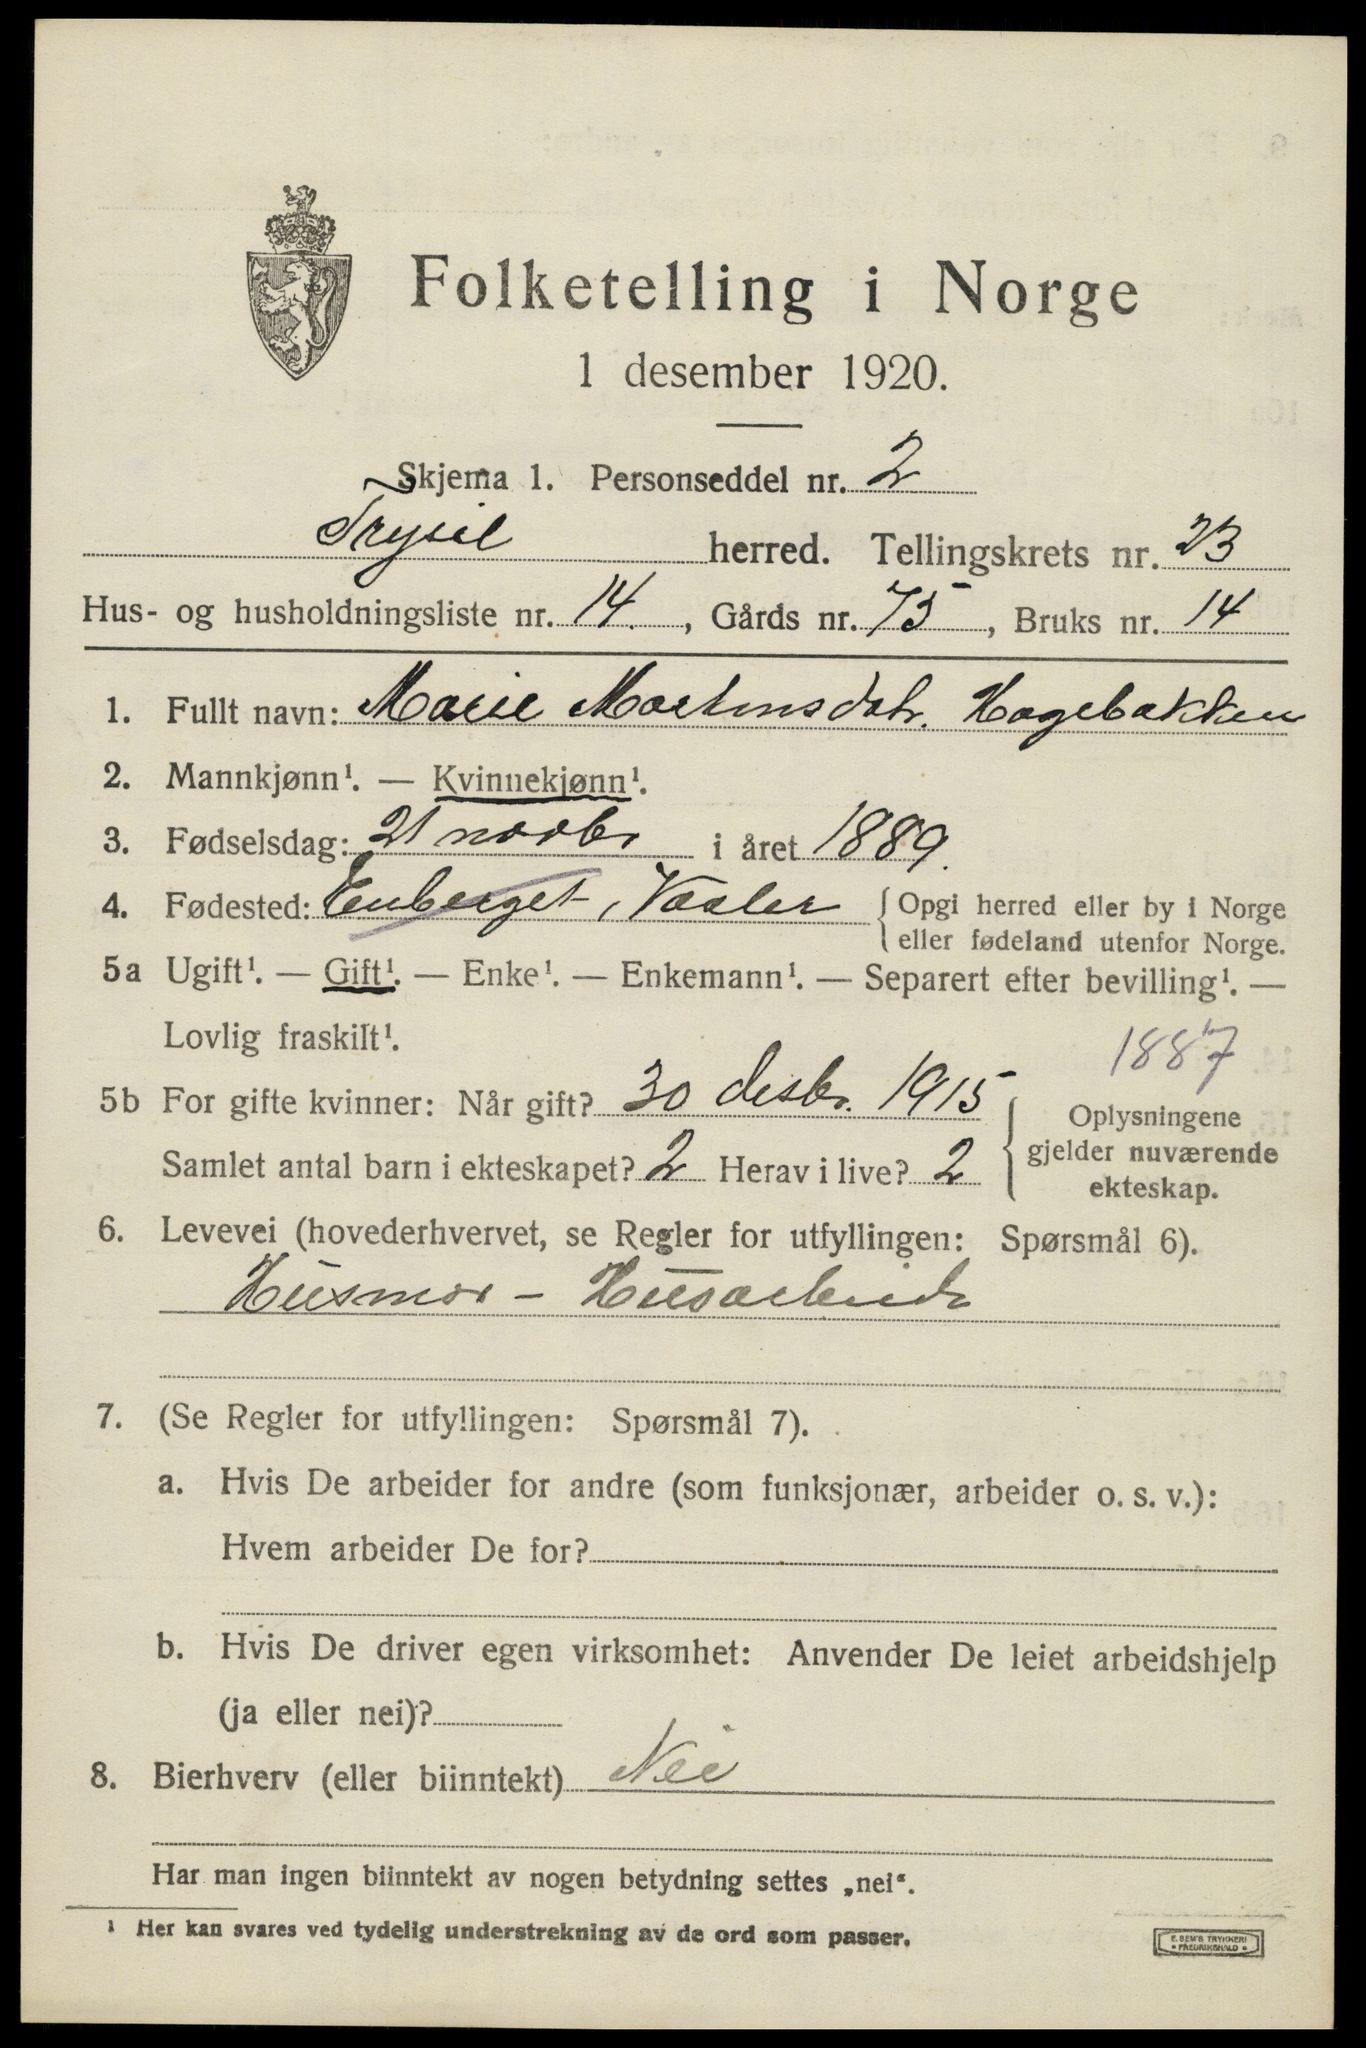 Folketelling i Norge
1 desember 1920.
Skjema 1. Personseddel nr. 2
Trysil herred. Tellingskrets nr. 23
Hus- og husholdningsliste nr. 14. , Gårds nr. 75 , Bruks nr. 14
1. Fullt navn: Marie Martinsdtr. Hagebakken
2. Mannkjønn¹. — Kvinnekjønn¹.
3. Fødselsdag: 21 novbr i året 1889.
4. Fødested: Enberget, Vaaler { Opgi herred eller by i Norge
eller fødeland utenfor Norge.
5a Ugift¹. — Gift¹. — Enke¹. — Enkemann¹. — Separert efter bevilling¹. —
Lovlig fraskilt¹.
1887
5b For gifte kvinner: Når gift? 30 desbr. 1915
Samlet antal barn i ekteskapet? 2 Herav i live? 2
{ Oplysningene
gjelder nuværende
ekteskap.
6. Levevei (hovederhvervet, se Regler for utfyllingen: Spørsmål 6).
Husmor - Husarbeide
7. (Se Regler for utfyllingen: Spørsmål 7).
a. Hvis De arbeider for andre (som funksjonær, arbeider o. s. v.):
Hvem arbeider De for?
b. Hvis De driver egen virksomhet: Anvender De leiet arbeidshjelp
(ja eller nei)?
8. Bierhverv (eller biinntekt) Nei
Har man ingen biinntekt av nogen betydning settes „nei“.
¹ Her kan svares ved tydelig understrekning av de ord som passer.
E. SEM'S TRYKKERI
• FREDRIKSHALD •